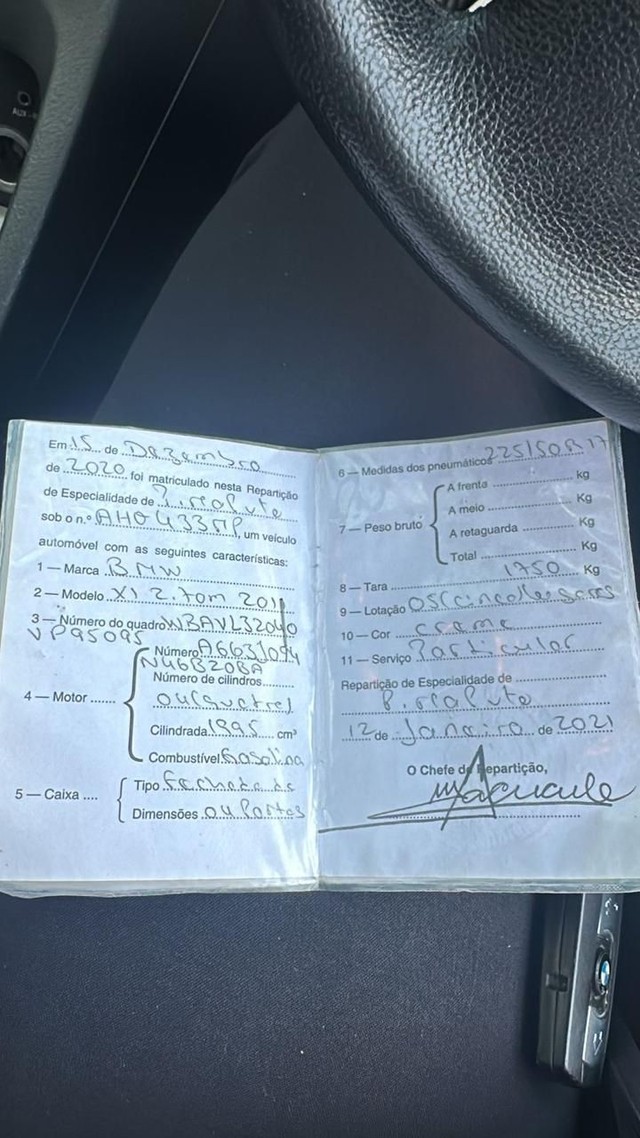 Em 15 de Dezembro
de 2020 foi matriculado nesta Repartição
de Especialidade de
sob o n.º AHG433MP, um veículo
automóvel com as seguintes características:
1 — Marca BMW
2 — Modelo X1 2.
3 — Número do quadro WBAVL32040
VP95095
Número A6631094
N46B20BA
4 — Motor
Número de cilindros
04 (quatro)
Cilindrada 1995 cm³
Combustível Gasolina
5 — Caixa
Tipo fechada
Dimensões 04 Portas
6 — Medidas dos pneumáticos 225/50R17
7 — Peso bruto
A frente kg
A meio Kg
A retaguarda Kg
Total Kg
8 — Tara 1750 Kg
9 — Lotação 05 (cinco) lugares
10 — Cor creme
11 — Serviço Particular
Repartição de Especialidade de
12 de Janeiro de 2021
O Chefe da Repartição,
AUX